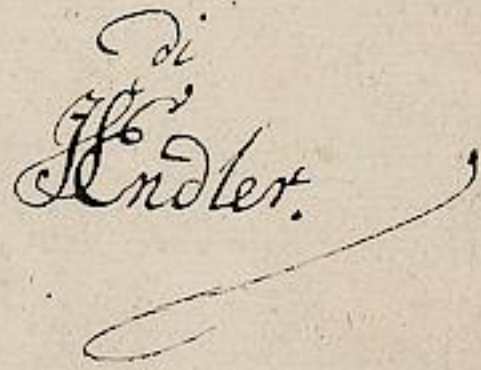 di
Hendler.